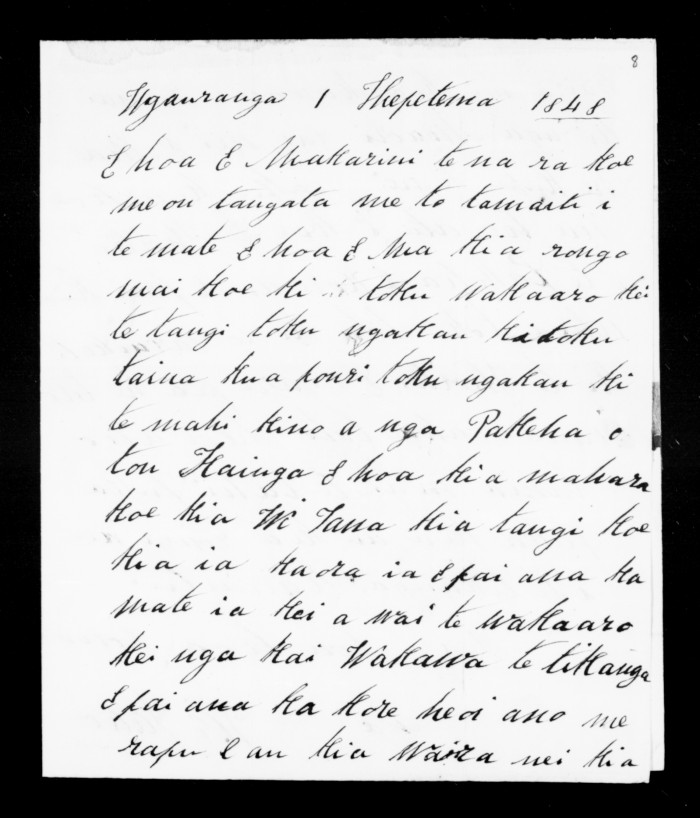 8
Ngauranga 1 Hepetema 1848
E hoa E Makarini te na ra koe
me ou tangata me to tamaiti i
te mate E hoa E Ma kia rongo
mai koe ki toku Wakaaro kei
te tangi toku ngakau ki toku
taina kua pouri toku ngakau ki
te mahi kino a nga Pakeha o
tou Kainga E hoa kia mahara
koe kia Wi Tana kia tangi koe
kia ia ka ora ia E pai ana ka
mate ia kei a wai te wakaaro
kei nga Kai Wakawa te tikanga
E pai ana ka kore heoi ano me
rapu E au kia Waira nei kia